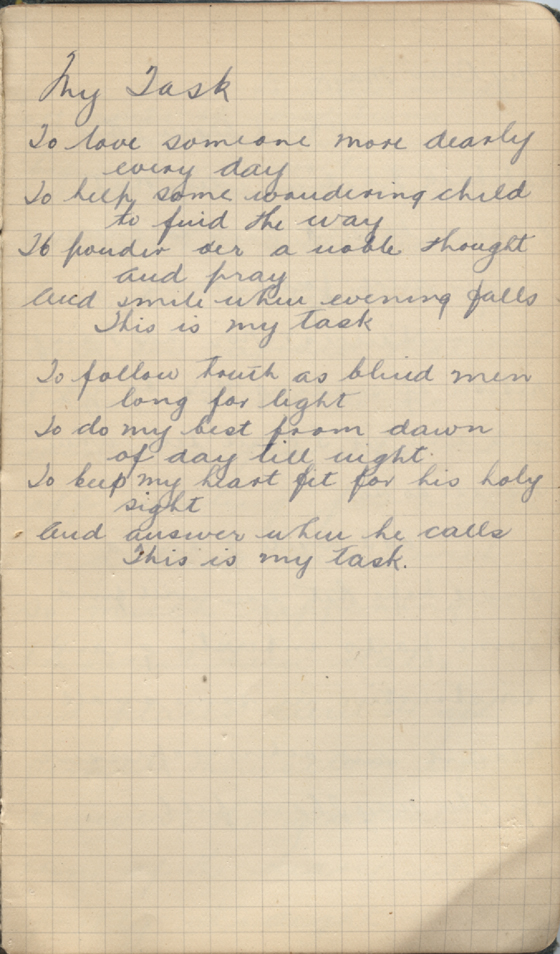 My Task
To love someone more dearly
every day
To help some wandering child
to find the way
To ponder oer a noble thought
and pray
And smile when evening falls
This is my task
To follow truth as blind men
long for light
To do my best from dawn
of day till night.
To keep my heart fit for his holy
sight
And answer when he calls
This is my task.